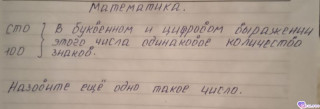 Математика.
сто } В буквенном и цифровом выражении
этого числа одинаковое количество
100 знаков.
Назовите ещё одно такое число.